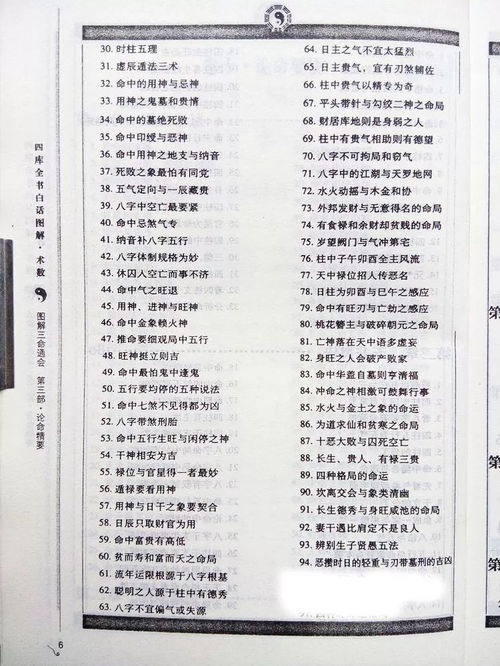 四库全书白话图解·术数
图解三命通会 第三部·论命精要
30. 时柱五理
31. 虚辰遁法三术
32. 命中的用神与忌神
33. 用神之鬼墓和贵情
34. 命中的墓绝死败
35. 命中印绶与恶神
36. 命中用神之地支与纳音
37. 死败之象最怕有同党
38. 五气定向与一辰藏贵
39. 八字中空亡最要紧
40. 命中忌煞气专
41. 纳音补八字五行
42. 八字体制规格为妙
43. 休囚人空亡而事不济
44. 命中气之旺退
45. 用神、进神与旺神
46. 命中金象赖火神
47. 推命要细观局中五行
48. 旺神挺立则吉
49. 命中最怕鬼中逢鬼
50. 五行要均停的五种说法
51. 命中七煞不见得都为凶
52. 八字带煞刑胎
53. 命中五行生旺与闲停之神
54. 干神相安为吉
55. 禄位与官星得一者最妙
56. 遁禄要看用神
57. 用神与日干之象要契合
58. 日辰只取财官为用
59. 命中富贵有高低
60. 贫而寿和富而夭之命局
61. 流年运限根源于八字根基
62. 聪明之人源于柱中有德秀
63. 八字不宜偏气或失源
64. 日主之气不宜太猛烈
65. 日主贵气，宜有刃煞辅佐
66. 柱中贵气以精专为奇
67. 平头带针与勾绞二神之命局
68. 财居库地则是身弱之人
69. 柱中有贵气相助则有德望
70. 八字不可拘局和窃气
71. 八字中的江湖与天罗地网
72. 水火动摇与木金和协
73. 外邦发财与无意得名的命局
74. 有食禄和余财却贫贱的命局
75. 岁望阙门与气冲第宅
76. 柱中子午卯酉全主风流
77. 天中禄位招人传恶名
78. 日柱为卯酉与巳午之感应
79. 命中有旺刃与亡劫之感应
80. 桃花簪主与破碎朝元之命局
81. 亡神落在天中语多虚妄
82. 身旺之人会破产败家
83. 命中华盖自墓则亨清福
84. 冲命之神相激可鼓舞行事
85. 水火与金土之象的命运
86. 为道求仙和贫寒之命局
87. 十恶大败与囚死空亡
88. 长生、贵人、有禄三贵
89. 四种格局的命运
90. 坎离交会与象类清幽
91. 长生德秀与身旺咸池的命局
92. 妻干遇比肩定不是良人
93. 辨别生子贤愚五法
94. 恶攒时日的轻重与刃带墓刑的吉凶
6